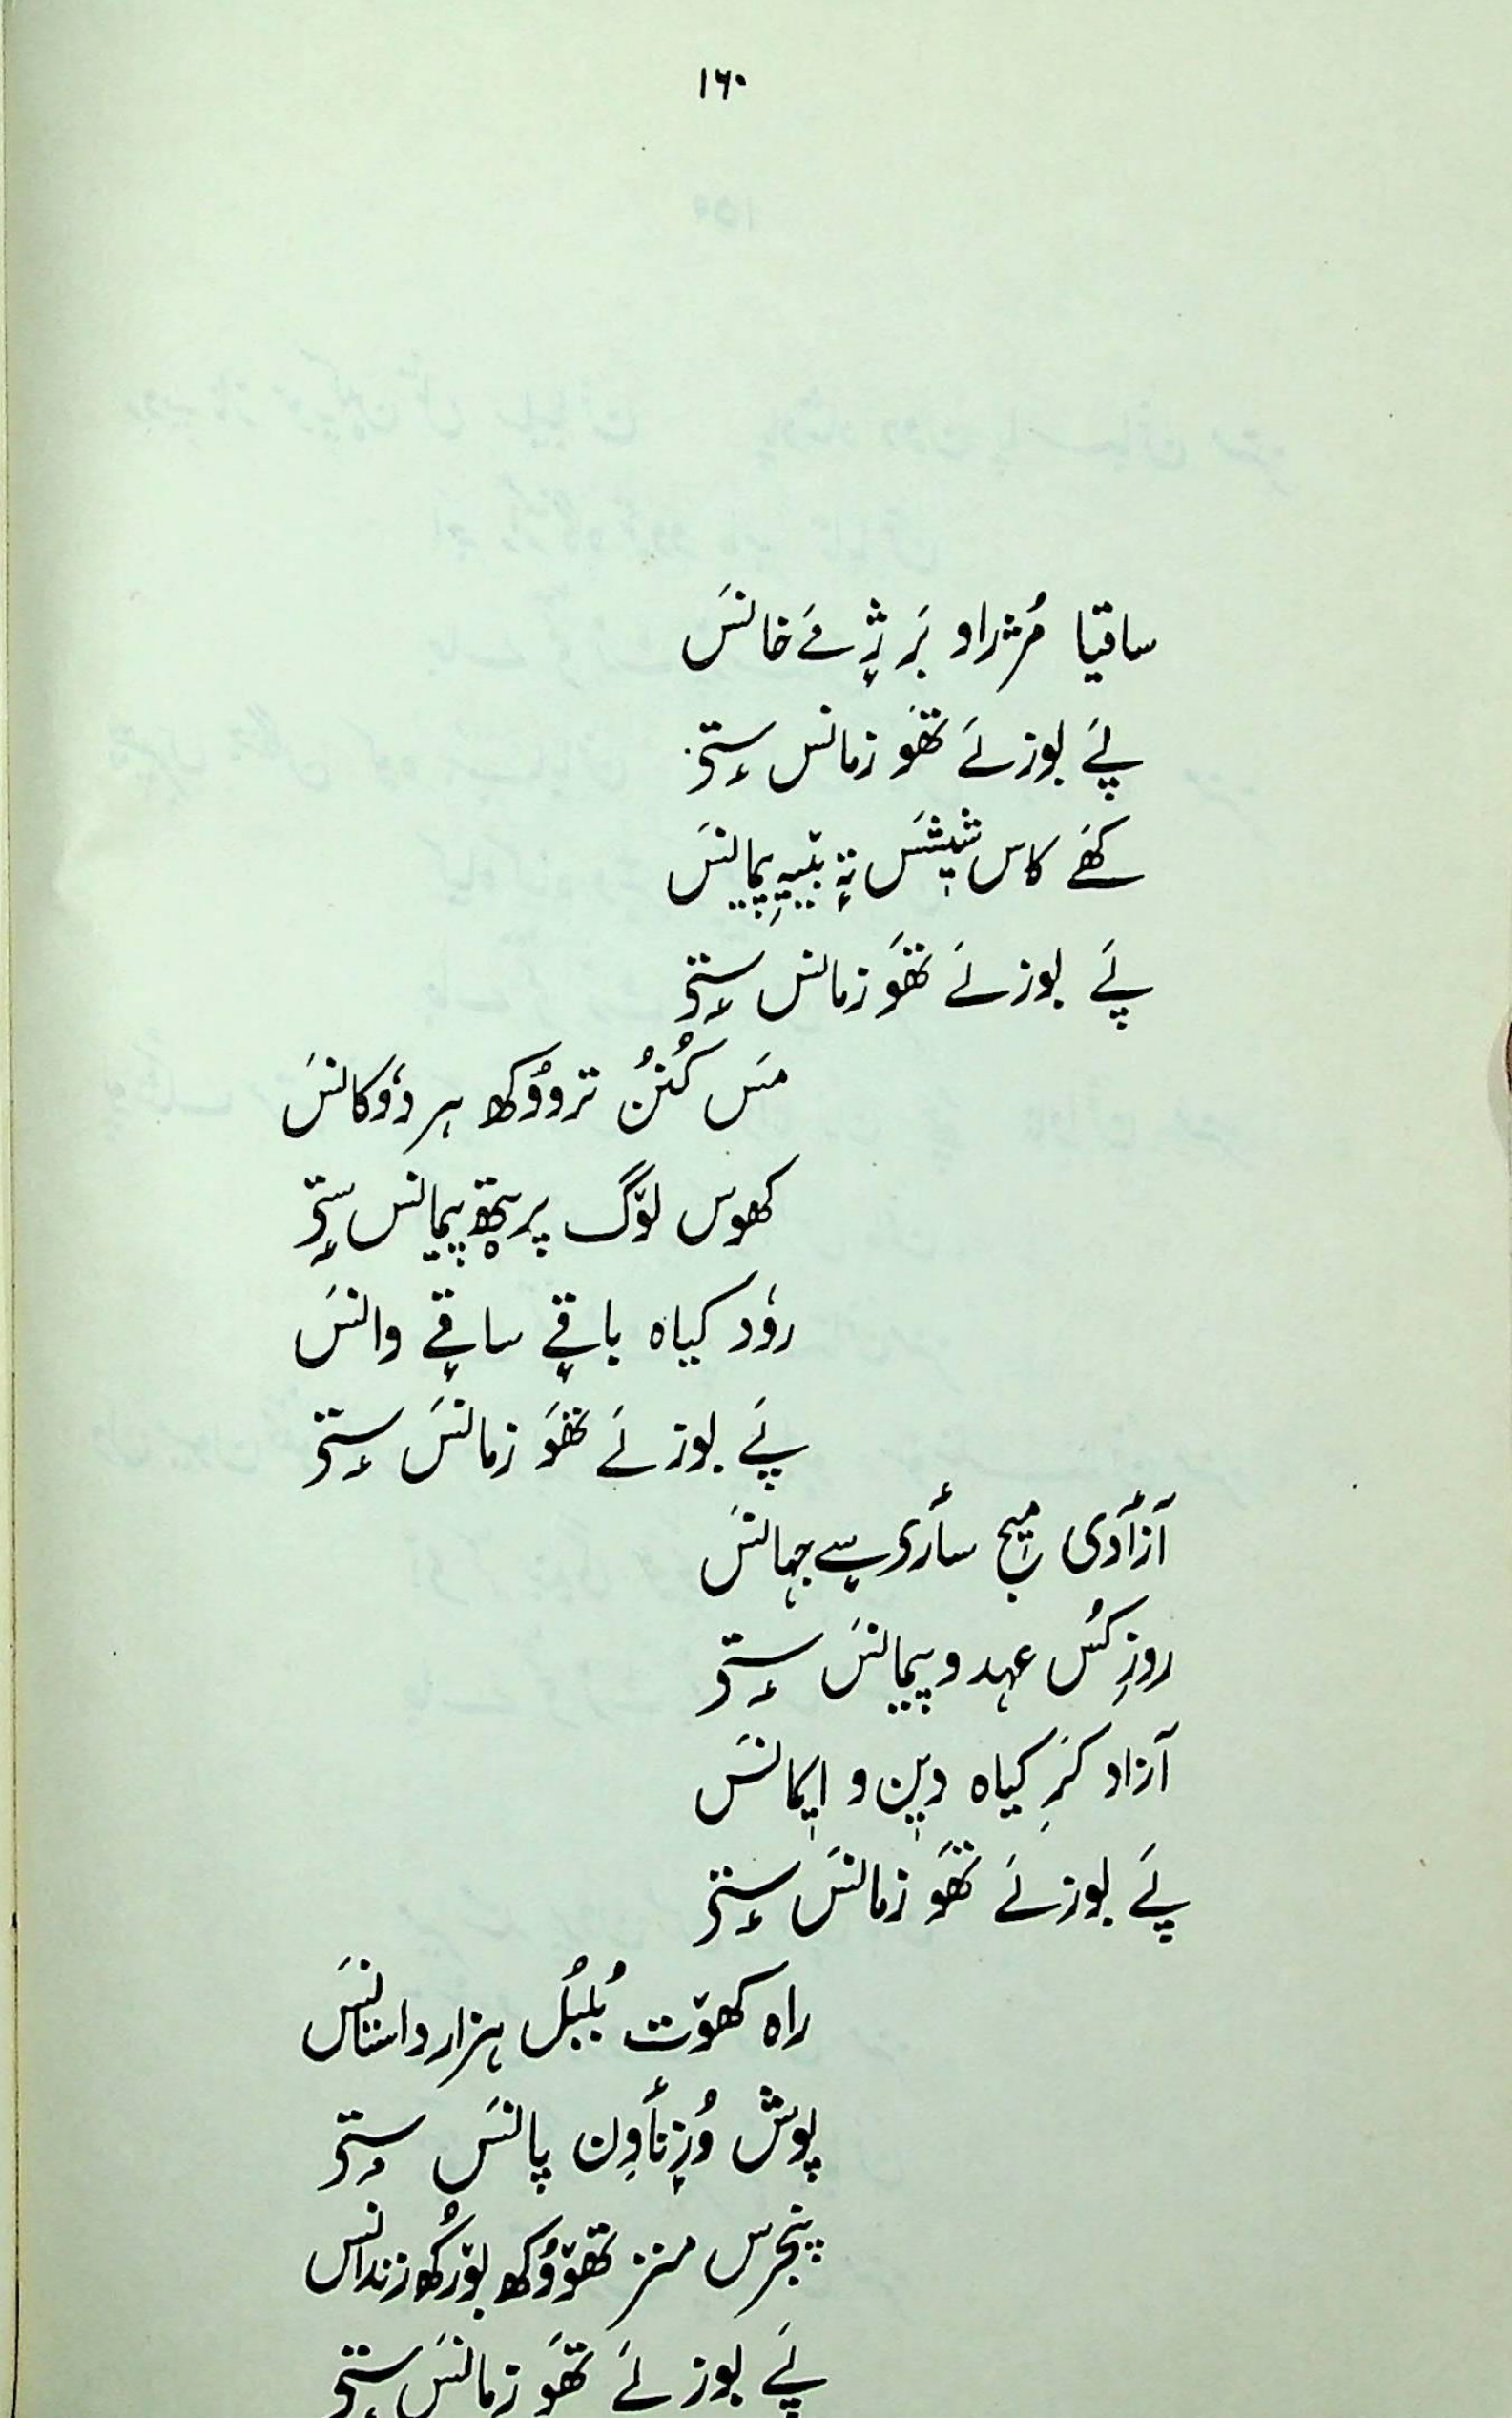 ۱۶۰
ساقیا مُژراو بَر ژٕ مَے خانسَ
پٔے بوز نَے تھَو زمانس ستؠ
کھَے کاس شیٖشَس تہٕ بٔییہِ پیمانسَ
پَے بوز نَے تھَو زمانس ستؠ
مَس کُننُ تروٚوُکھ ہر دوٗکانسَ
کھوس لوٚگ پرٛتھ پیمانس ستؠ
روٗد کیاہ باقٕے ساقٕے وانسَ
پَے بوز نَے تھَو زمانسَ ستؠ
آزٲدی میٖج سٲری سٕے جہانسَ
روزِ کُس عہد و پیمانسَ ستؠ
آزاد کَرِ کیاہ دیٖن و ایٖمانسَ
پَے بوز نَے تھَو زمانسَ ستؠ
راہ کھوٚت بُلبُل ہزار داستانسَ
پوش وُزنٲوِن پانسَ ستؠ
پنجرس منز تھوٚوُکھ لوٚرُکھ زندانس
پَے بوز نَے تھَو زمانسَ ستؠ